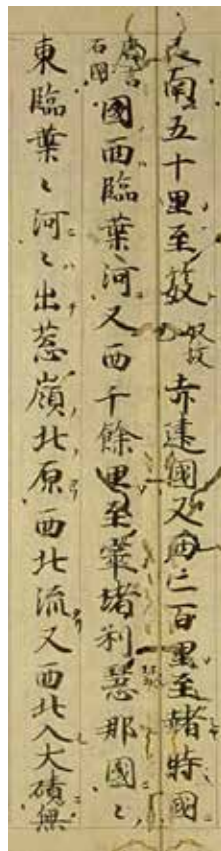 南五十里至笯奴故赤建國又西二百里至赭特國
唐言石國國西臨葉河又西千餘里至窣堵利瑟那國〻
東臨葉〻河〻出葱嶺北原西北流又西北入大磧無